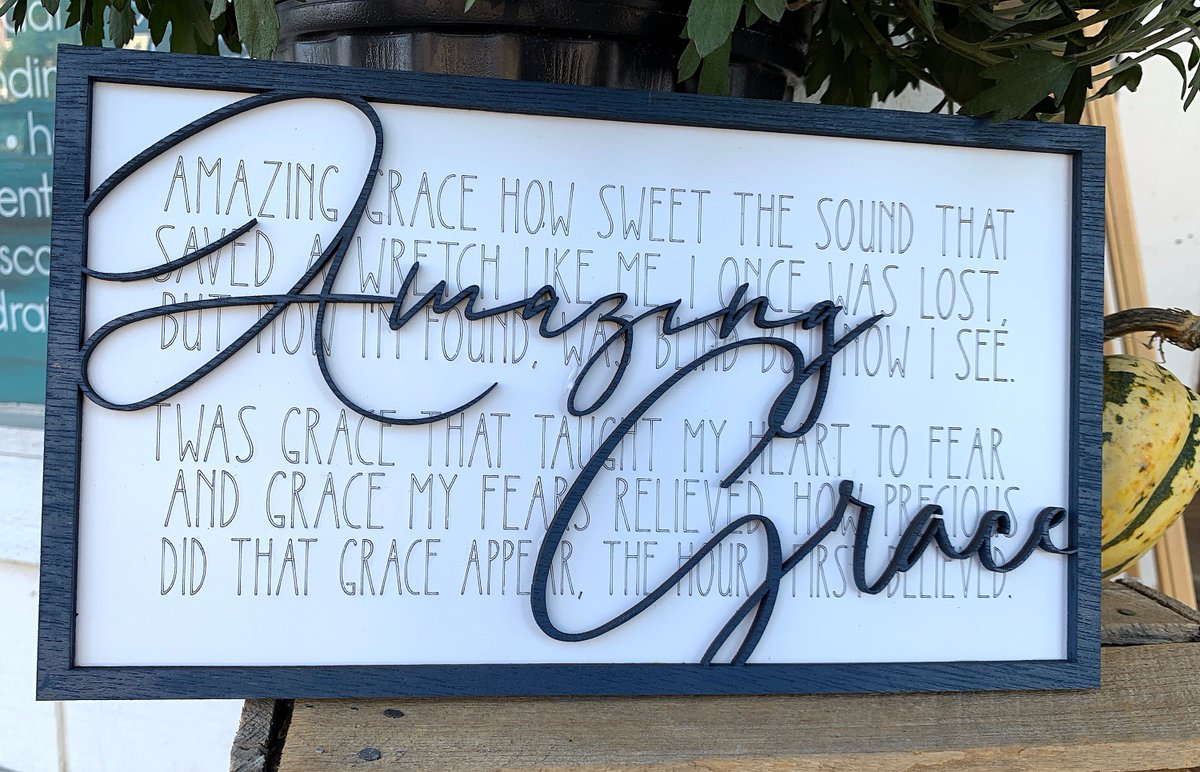 Amazing Grace
AMAZING GRACE HOW SWEET THE SOUND THAT
SAVED A WRETCH LIKE ME I ONCE WAS LOST,
BUT NOW I'M FOUND, WAS BLIND BUT NOW I SEE.
TWAS GRACE THAT TAUGHT MY HEART TO FEAR
AND GRACE MY FEARS RELIEVED HOW PRECIOUS
DID THAT GRACE APPEAR, THE HOUR I FIRST BELIEVED.